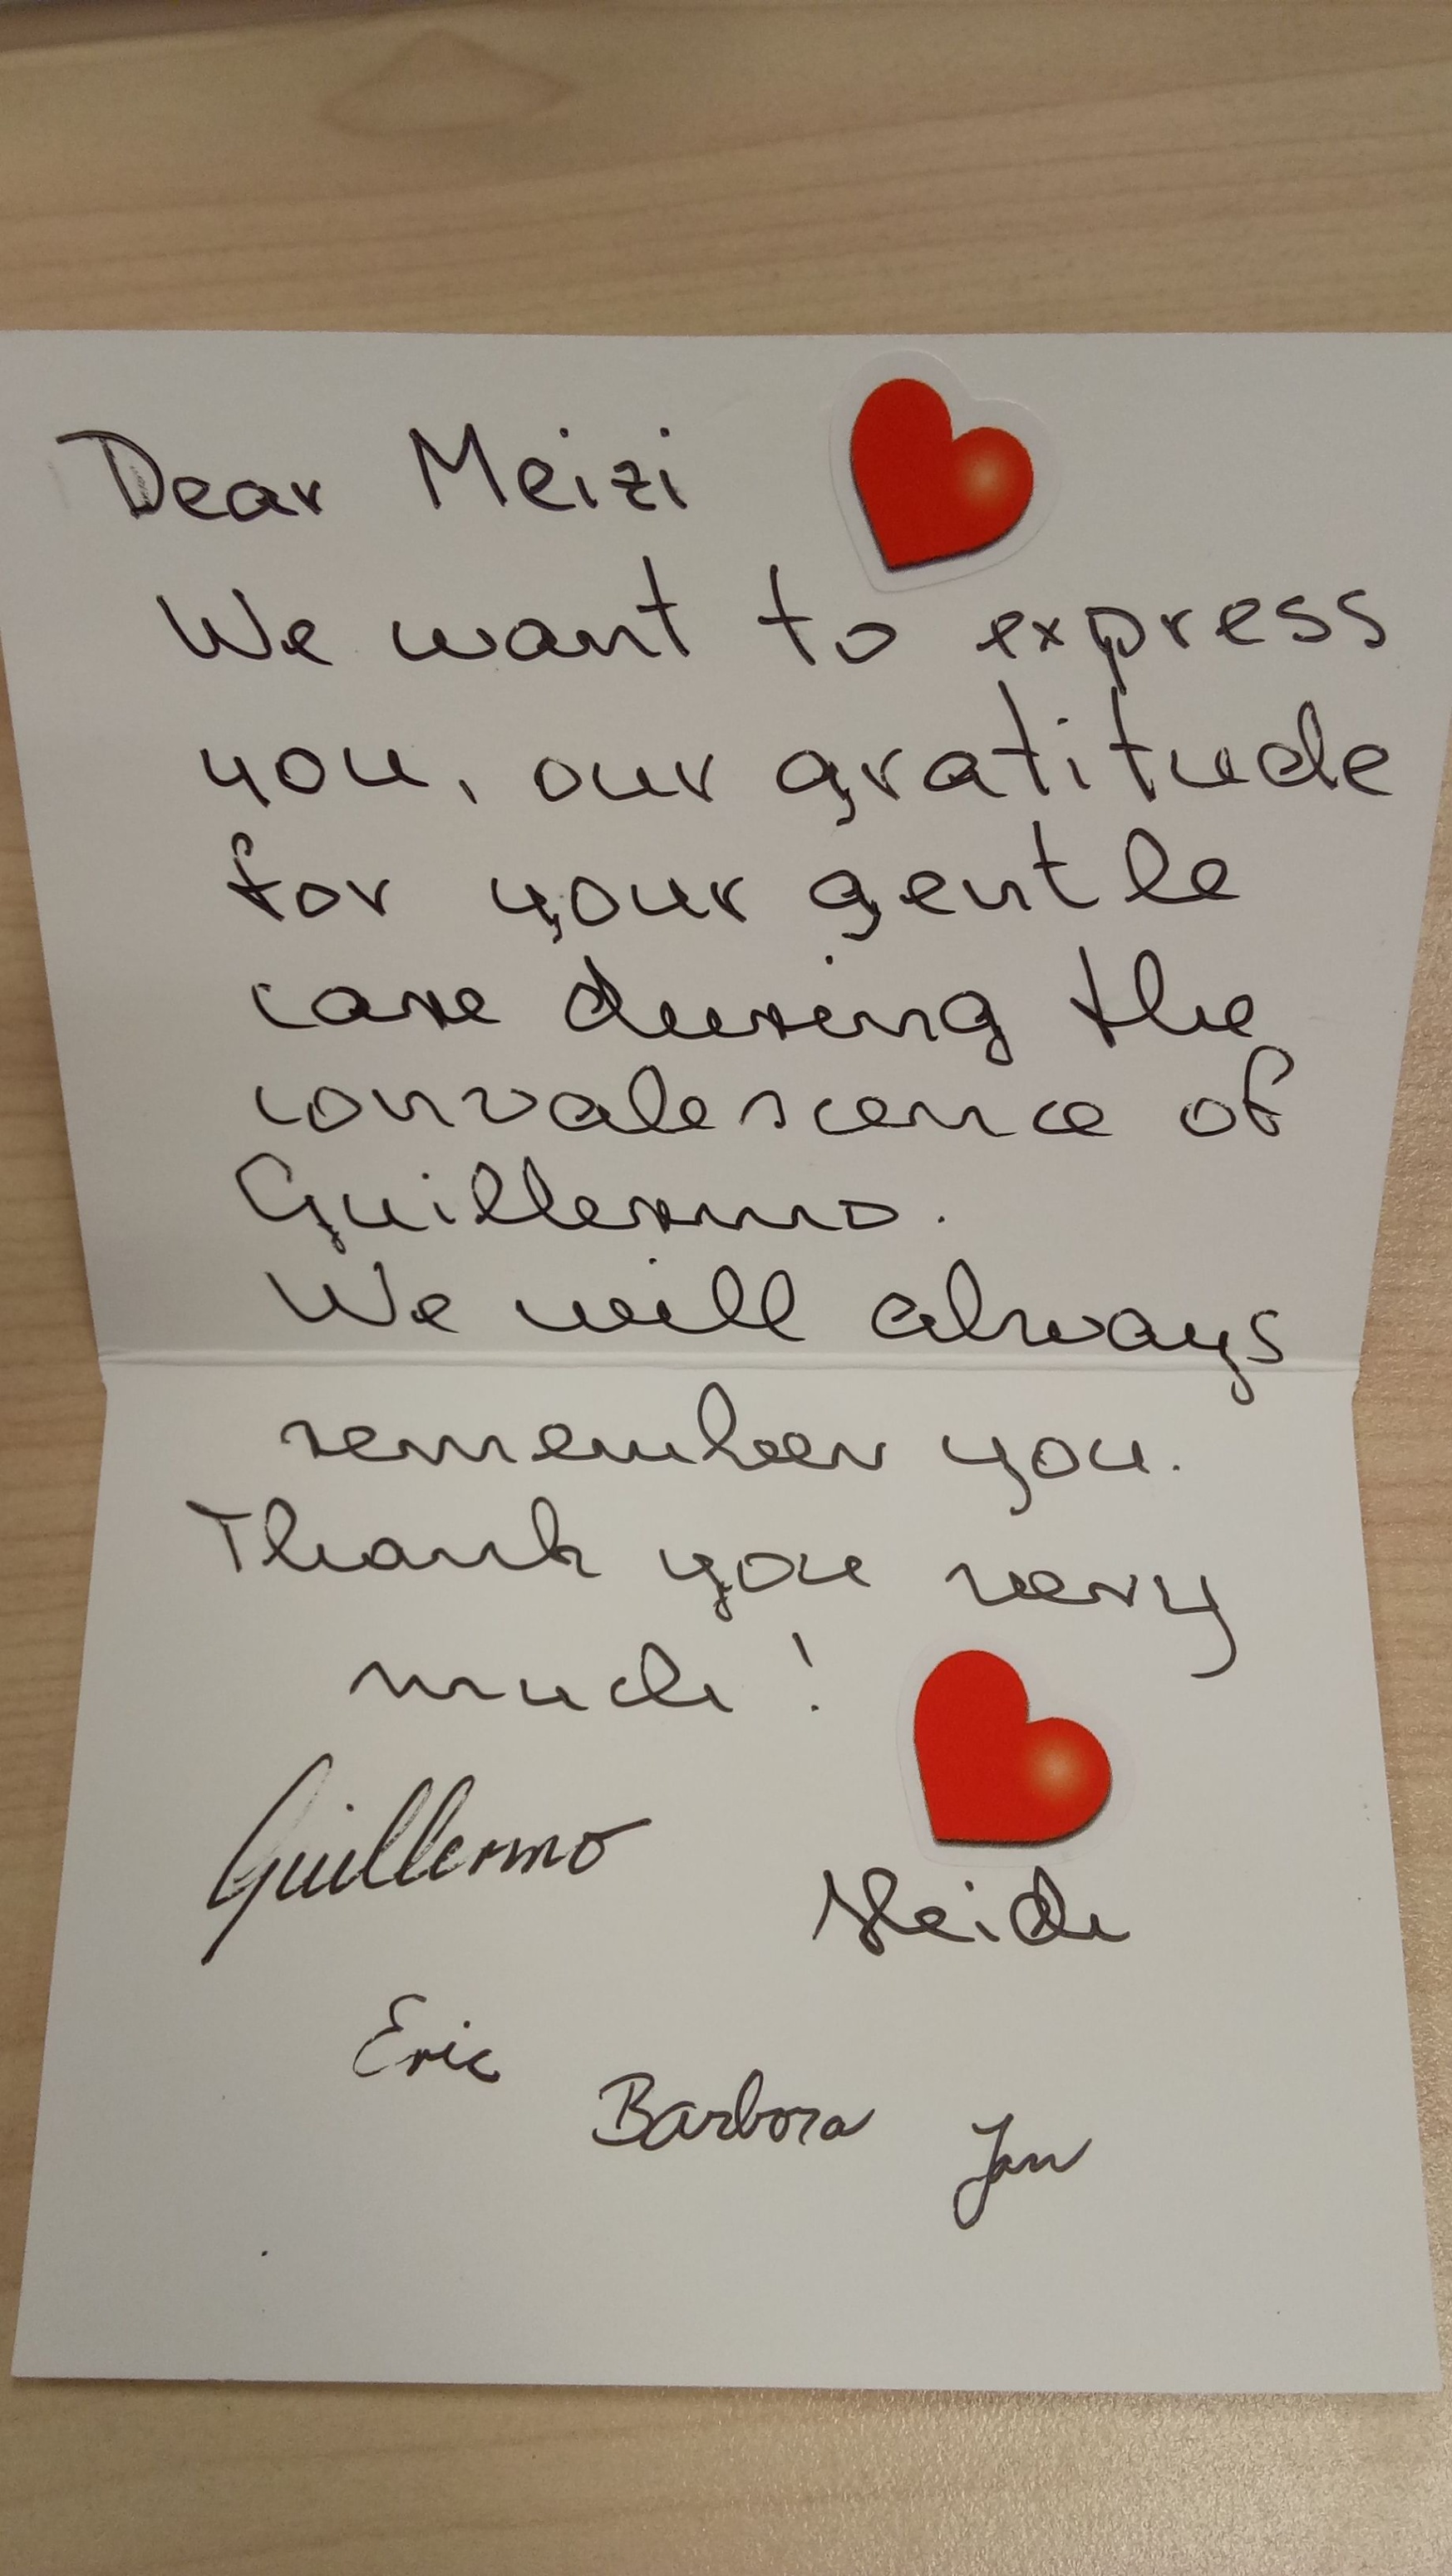 Dear Meizi
We want to express
you, our gratitude
for your gentle
care during the
convalescence of
Guillermo.
We will always
remember you.
Thank you very
much!
Guillermo
Heidi
Eric
Barbora Jan